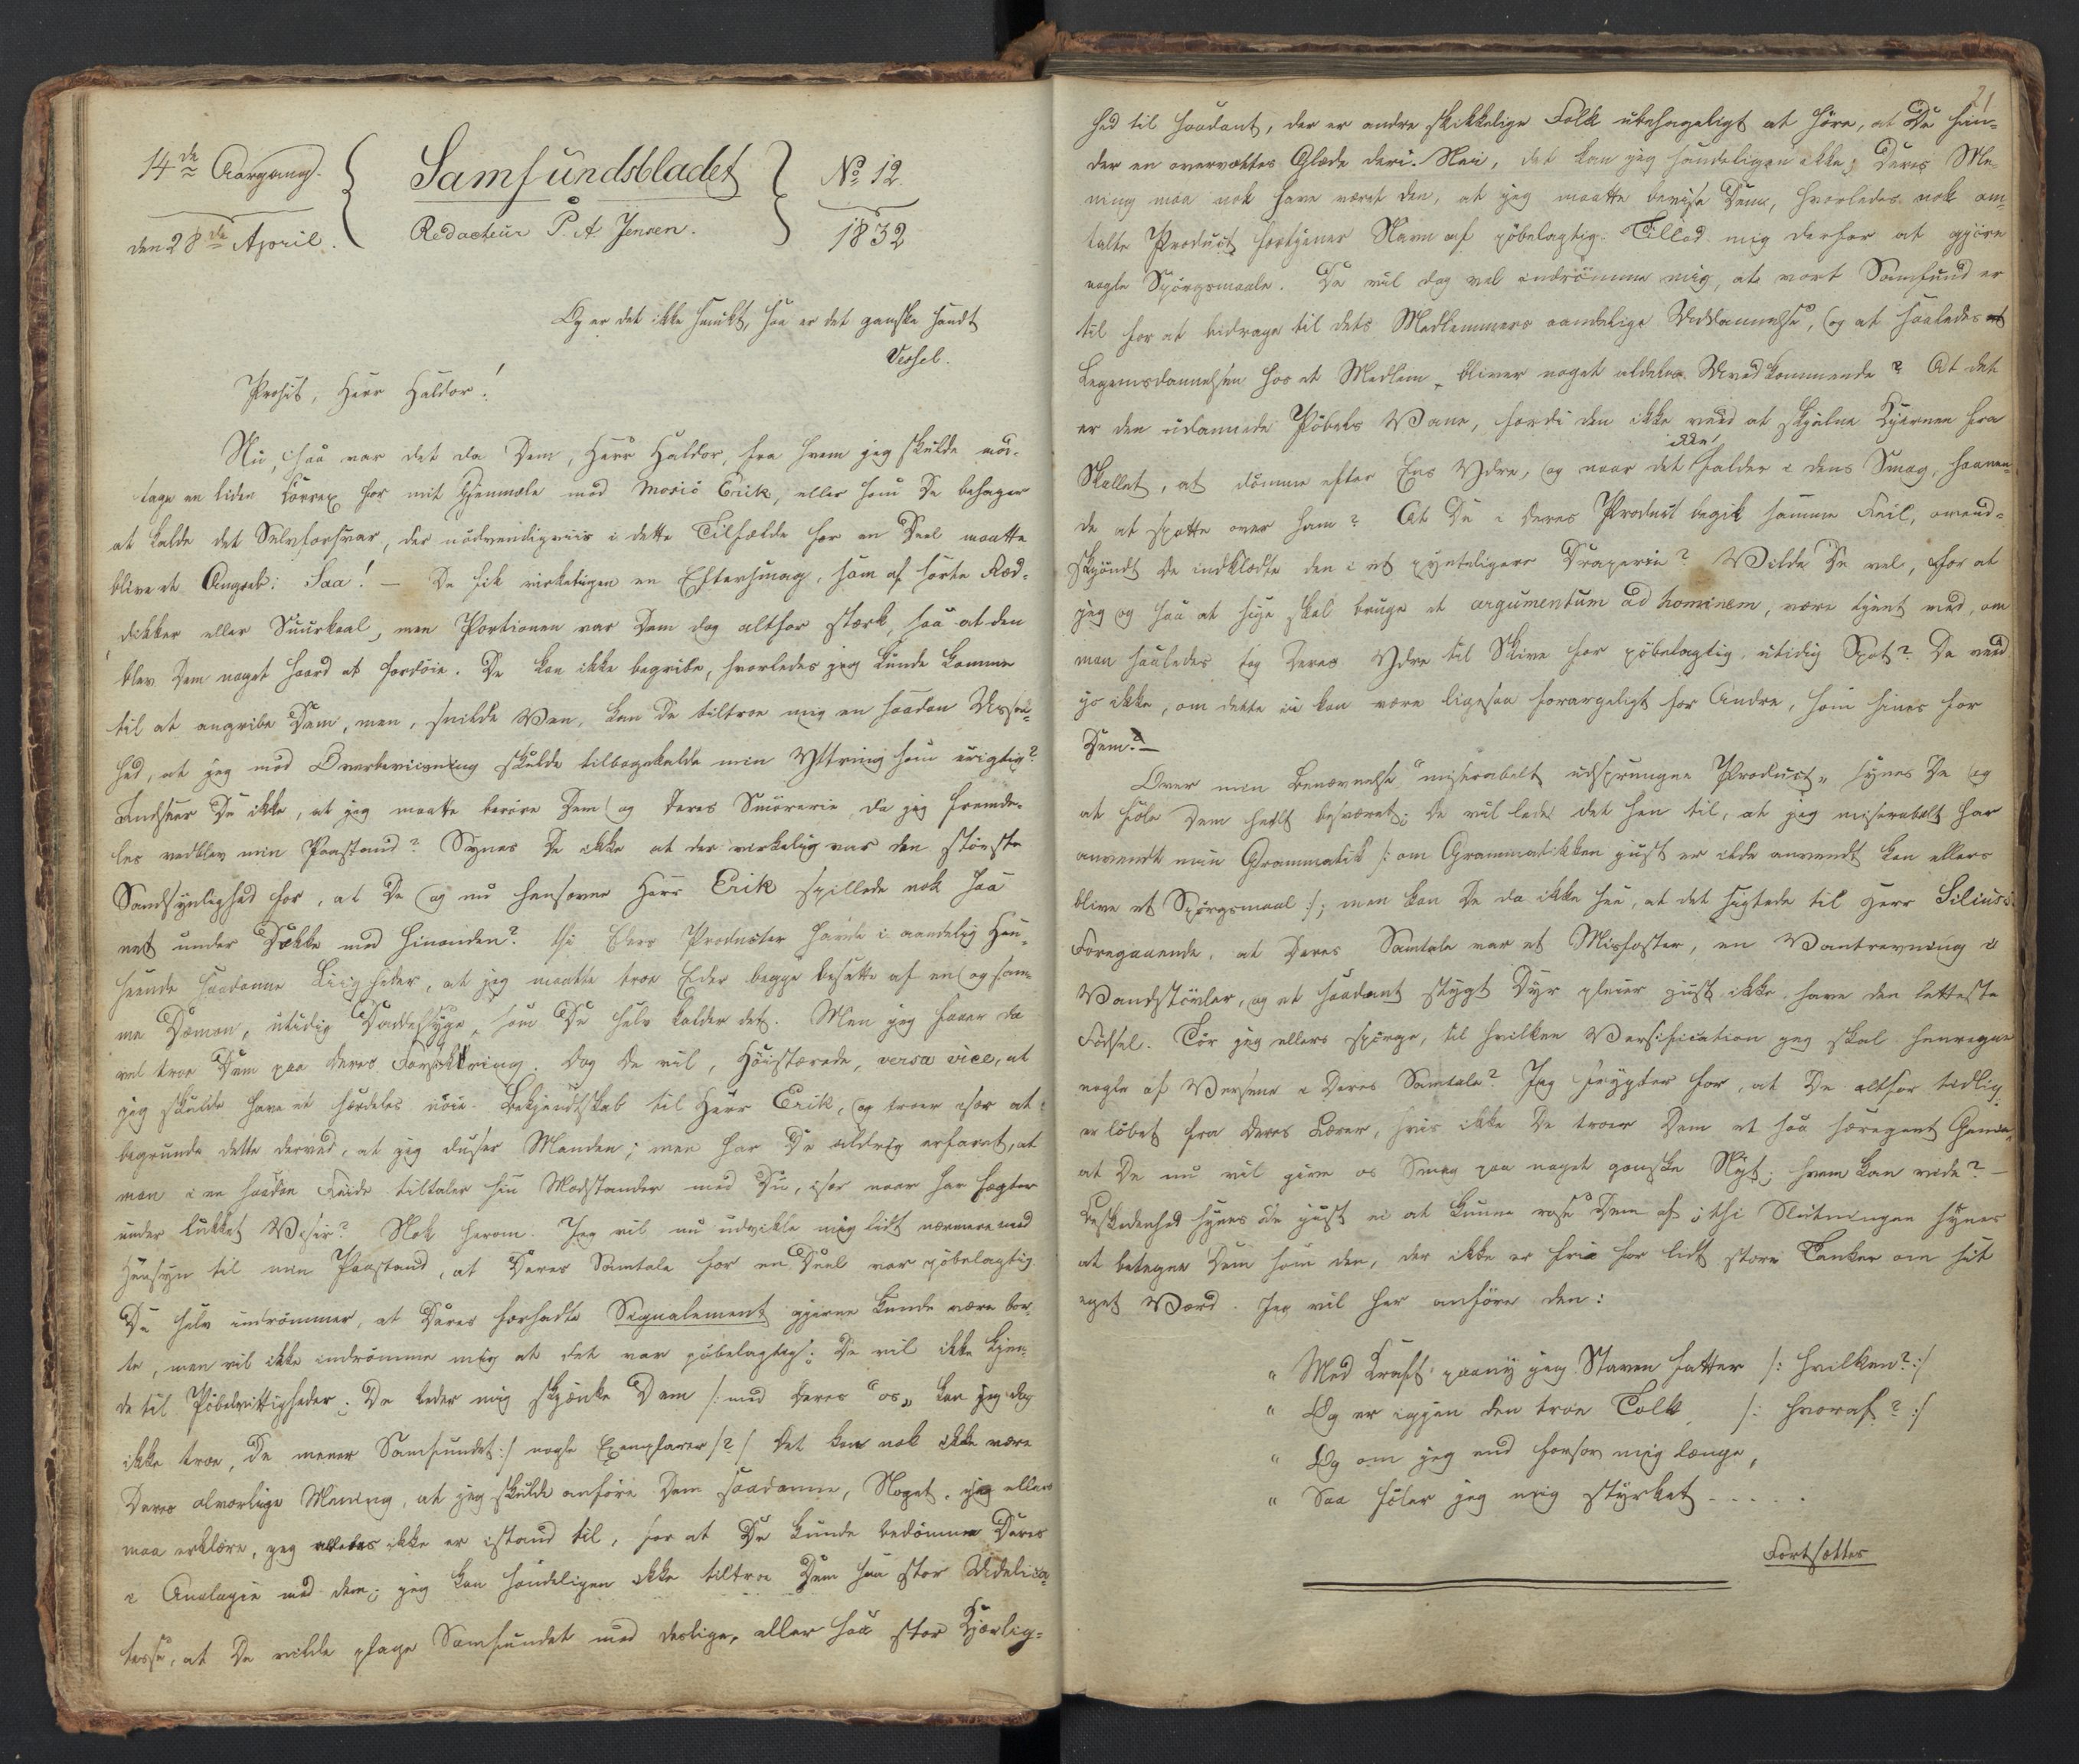 14de Aargang.
Samfundsbladet
No 12.
den 28de April.
Redacteur P. A. Jensen.
1832
Og er det ikke smukt, saa er det ganske sandt
Vessel.
Prosit, Herr Haldor!
Nu, saa var det da Dem, Herr Haldor, fra hvem jeg skulde mod-
tage en liden Correx for mit Gjenmæle mod Mosiö Erik, eller som De behager
at kalde det Selvforsvar, der nödvendigviis i dette Tilfælde for en Deel maatte
blive et Angreb: Saa! — De fik virkeligen en Eftersmag, som af sorte Ræd-
dikker eller Suurkaal, men Portionen var Dem dog altfor stærk, saa at den
blev Dem noget haard at fordöie. De kan ikke begribe, hvorledes jeg kunde komme
til at angribe Dem, men, snilde Ven, kan De tiltroe mig en saadan Ussel-
hed, at jeg mod Overbeviisning skulde tilbagekalde min Yttring som urigtig?
Indseer De ikke, at jeg maatte beröre Dem og Deres Smörerie, da jeg fremde-
les vedblev min Paastand? Synes De ikke at der virkelig var den störste
Sandsynlighed for, at De og nu hensovne Herr Erik spillede nok saa
net under Dække med hinanden? thi Eders Producter havde i aandelig Hen-
seende saadanne Liigheder, at jeg maatte troe Eder begge besatte af en og sam-
me Dæmon, utidig Daddelsyge, som De selv kalder det. Men jeg faaer da
vel troe Dem paa Deres Forsikkring. Dog De vil, Höistærede, versa vice, at
jeg skulde have et særdeles nöie Bekjendtskab til Herr Erik, og troer især at
begrunde dette derved, at jeg duser Manden; men har De aldrig erfaret, at
man i en saadan Feide tiltaler sin Modstander med Du, især naar han fægter
under lukket Visir? Nok herom. Jeg vil nu udvikle mig lidt nærmere med
Hensyn til min Paastand, at Deres Samtale for en Deel var pöbelagtig.
De selv indrömmer, at Deres forhadte Signalement gjerne kunde være bor-
te, men vil ikke indrömme mig at det var pöbelagtig; De vil ikke kjen-
de til Pöbelvittigheder; De beder mig skjænke Dem /: med Deres "os" kan jeg dog
ikke troe, De mener Samfundet :/ nogle Exemplarer /?/ Det kan nok ikke være
Deres alvorlige Mening, at jeg skulde anföre Dem saadanne, Noget, jeg ellers
maa erklære, jeg ikke er istand til, for at De kunde bedömme Deres
i Analogie med dem; jeg kan sandeligen ikke tiltroe Dem saa stor Udelica-
tesse, at De vilde plage Samfundet med deslige, eller saa stor Kjærlig-
21
hed til saadant, der er andre skikkelige Folk ubehageligt at höre, at De fin-
der en overvættes Glæde deri. Nei, det kan jeg sandeligen ikke; Deres Me-
ning maa nok have været den, at jeg maatte bevise Dem, hvorledes nok om-
talte Product fortjener Navn af pöbelagtig. Tillad mig derfor at gjöre
nogle Spörgsmaale. De vil dog vel indrömme mig, at vort Samfund er
til for at bidrage til dets Medlemmers aandelige Uddannelse, og at saaledes
Legemsdannelsen hos et Medlem, bliver noget aldeles Uvedkommende? At det
er den udannede Pöbels Vane, fordi den ikke veed at skjelne Kjernen fra
Skallet, at dömme efter Ens Ydre, og naar det ikke falder i dens Smag, saanen-
de at spotte over ham? At De i Deres Product begik samme Feil, omend-
skjöndt De indklædte den i et pynteligere Draperie? Vilde De vel, for at
jeg og saa at sige skal bruge et argumentum ad hominem, være tjent med, om
man saaledes tog Deres Ydre til Skive for pöbelagtig, utidig Spot? De veed
jo ikke, om dette ei kan være ligesaa forargeligt for Andre, som hines for
Dem? —
Over min Benævnelse "miserabelt udsprungne Product" synes De og
at föle Dem heelt besværet; De vil lede det hen til, at jeg miserabelt har
anvendt min Grammatik /: om Grammatikken just er ilde anvendt kan ellers
blive et Spörgsmaal :/; men kan De da ikke see, at det sigtede til Herr Silius's
Foregaaende, at Deres Samtale var et Misfoster, en Vantrevning i
Vandstövler, og et saadant stygt Dyr pleier just ikke have den letteste
Födsel. Tör jeg ellers spörge, til hvilken Versification jeg skal henregne
nogle af Versene i Deres Samtale? Jeg frygter for, at De altfor tidlig
er löbet fra Deres Lærer, hvis ikke De troer Dem et saa særegent Genie,
at De nu vil give os Smag paa noget ganske Nyt; hvem kan vide? —
Beskedenhed synes De just ei at kunne rose Dem af; thi Slutningen synes
at betegne Dem som den, der ikke er frie for lidt store Tanker om sit
eget Værd. Jeg vil her anföre den:
" Med Kraft paany jeg Staven fatter /: hvilken? :/
" Og er igjen den troe Tolk, /: hvoraf? :/
" Og om jeg end forsov mig længe,
" Saa föler jeg mig styrket - - - - -
Fortsættes